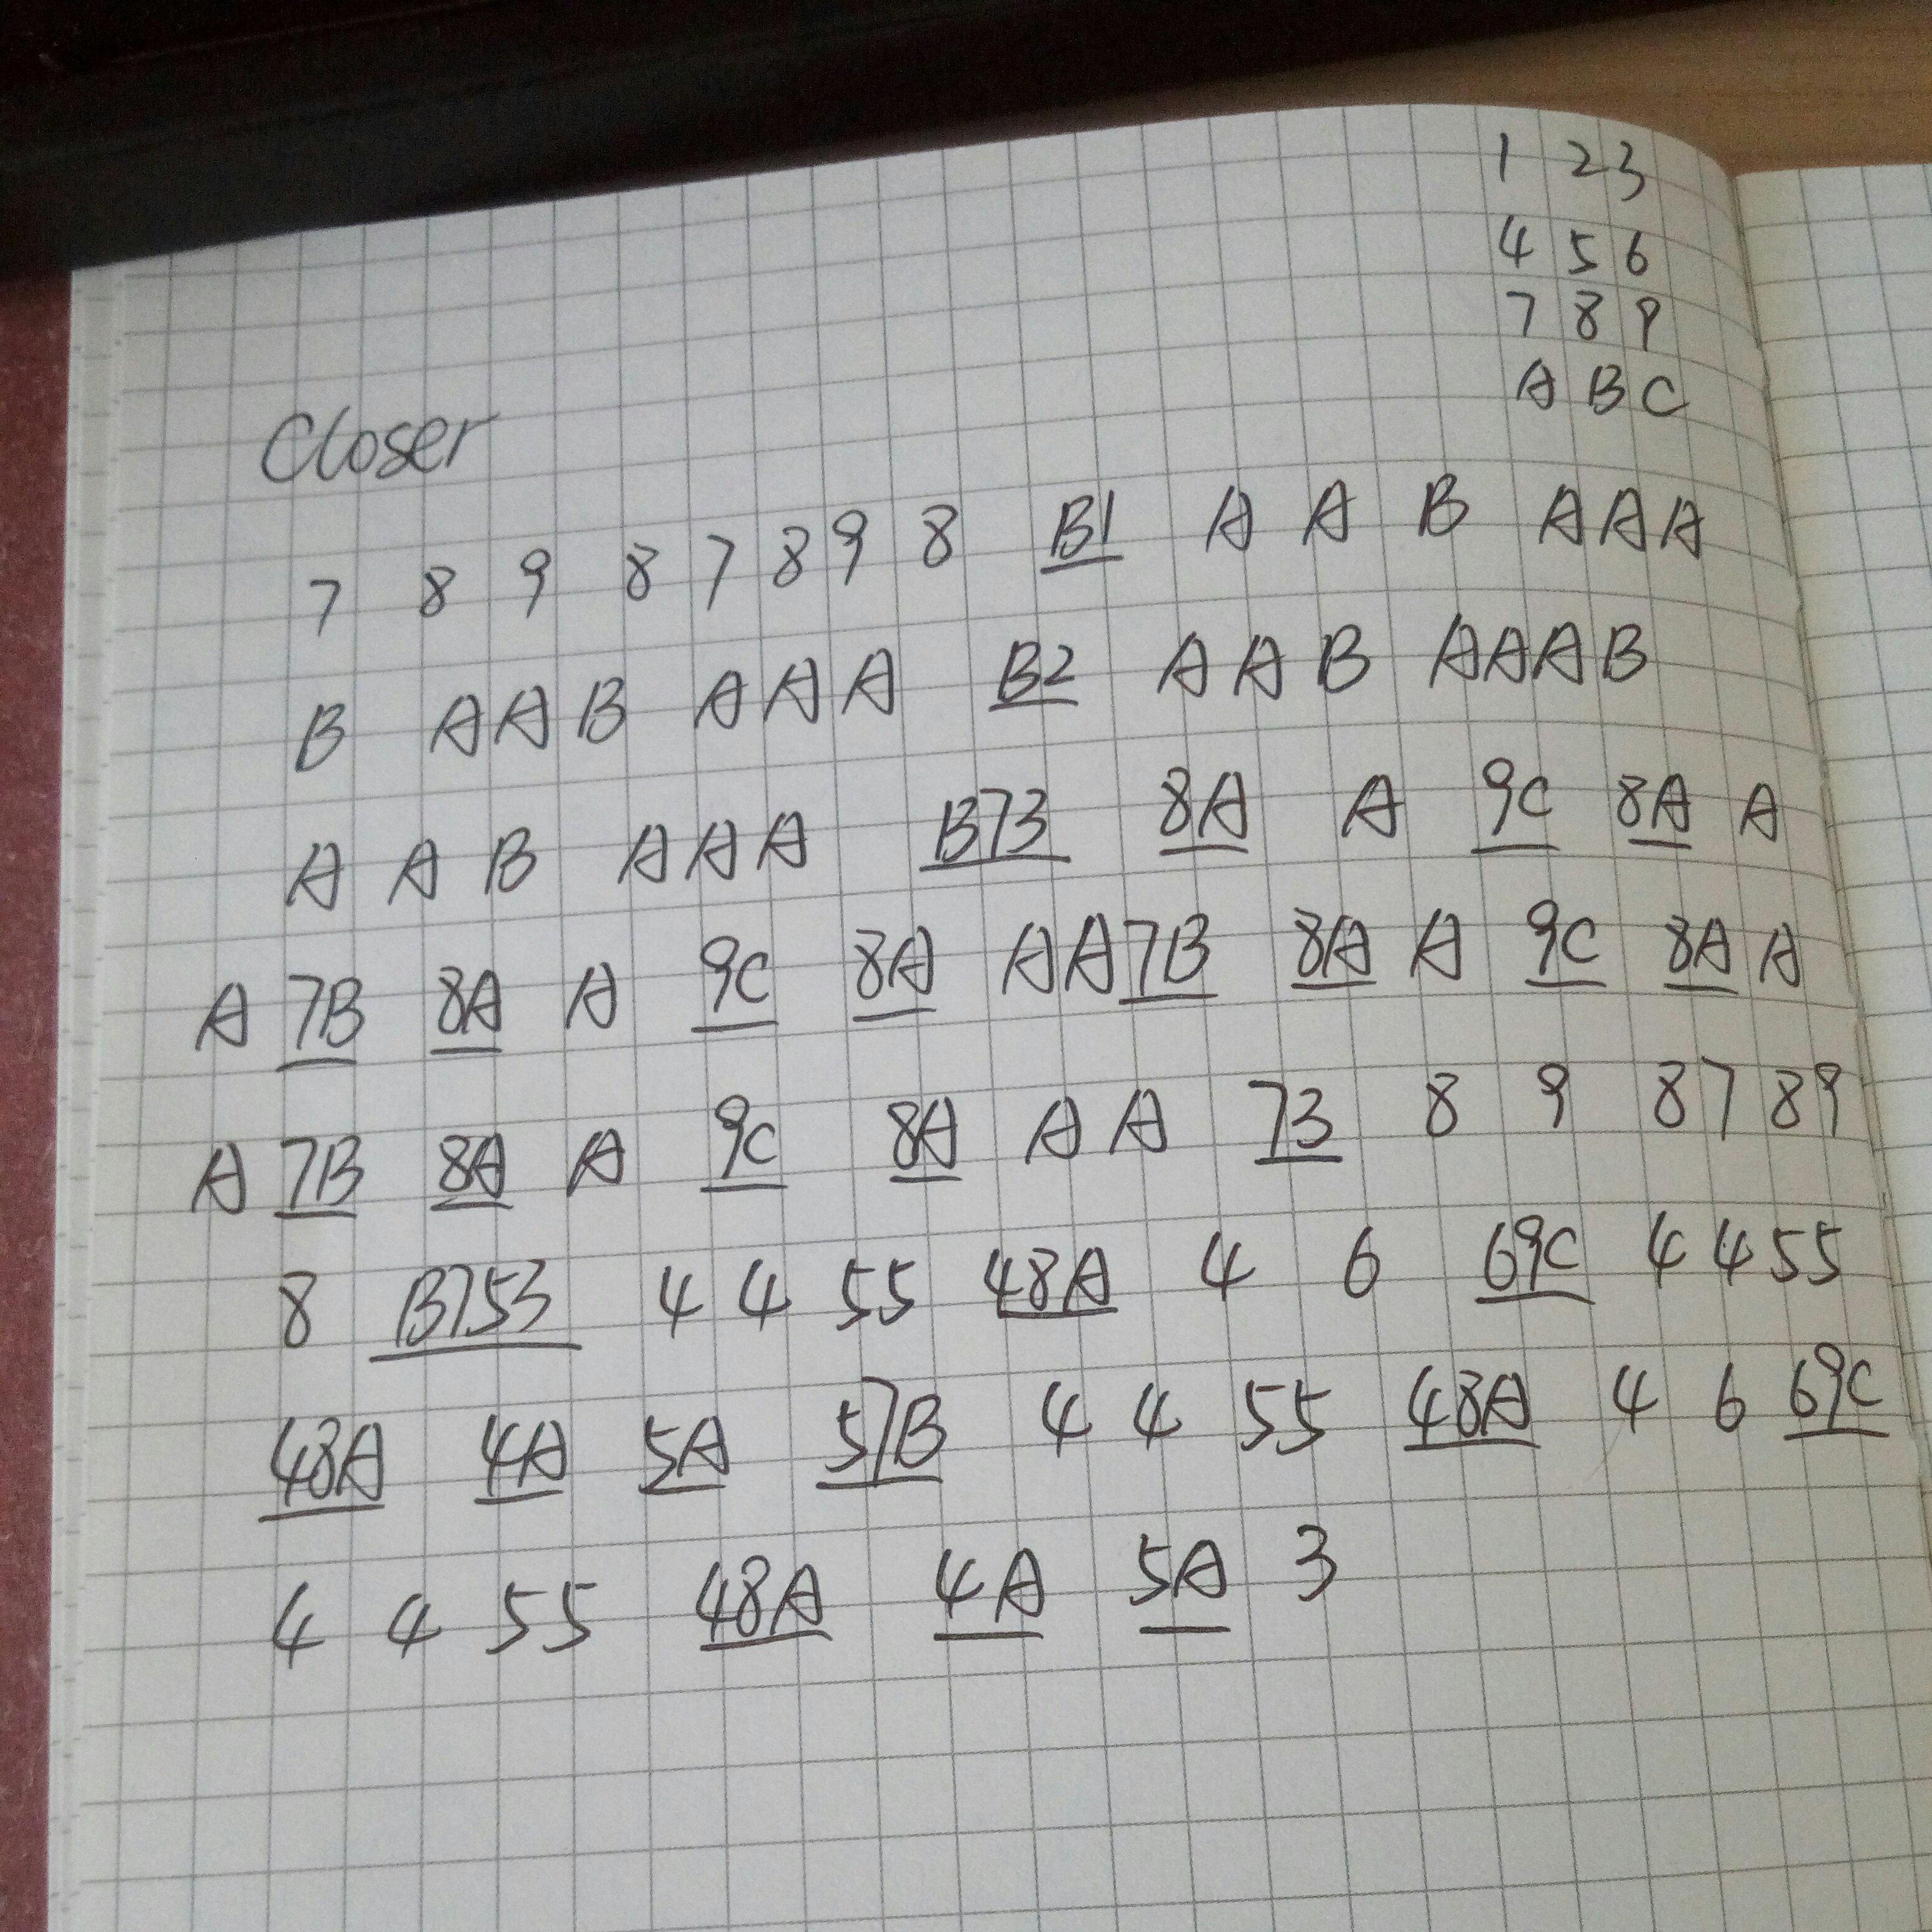 1 2 3
4 5 6
7 8 9
A B C
Closer
7 8 9 8 7 8 9 8 B1 A A B A A A
B A A B A A A B2 A A B A A A B
A A B A A A B73 8A A 9C 8A A
A 7B 8A A 9C 8A A A 7B 8A A 9C 8A A
A 7B 8A A 9C 8A A A 73 8 9 8 7 8 9
8 B753 4 4 5 5 48A 4 6 69C 4 4 5 5
48A 4A 5A 57B 4 4 5 5 48A 4 6 69C
4 4 5 5 48A 4A 5A 3